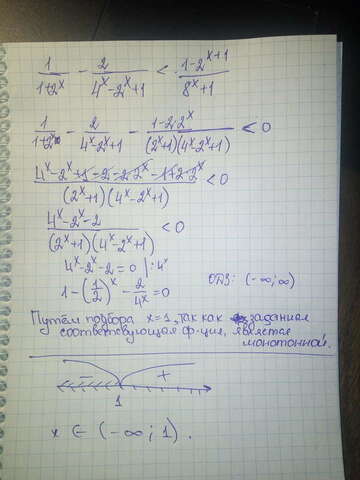 1/(1+2^x) - 2/(4^x-2^x+1) < (1-2^(x+1))/(8^x+1)
1/(1+2^x) - 2/(4^x-2^x+1) - (1-2·2^x)/((2^x+1)(4^x-2^x+1)) < 0
(4^x-2^x+1-2-2·2^x-1+2·2^x)/((2^x+1)(4^x-2^x+1)) < 0
(4^x-2^x-2)/((2^x+1)(4^x-2^x+1)) < 0
4^x-2^x-2=0 |:4^x
1-(1/2)^x - 2/4^x = 0 ОДЗ: (-∞;∞)
Путём подбора x=1, так как заданная
соответствующая ф-ция, является
монотонной.
- +
1
x ∈ (-∞; 1).